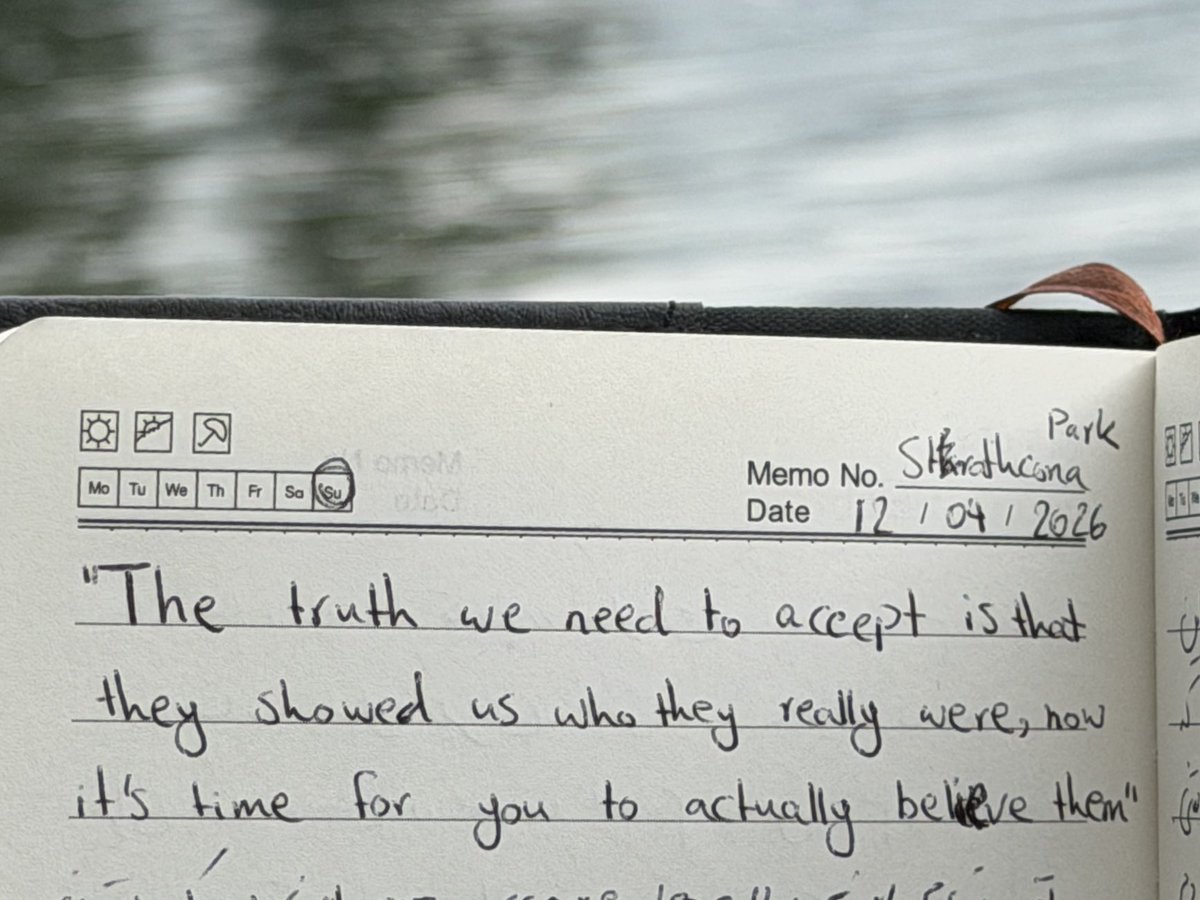 Park
Mo Tu We Th Fr Sa Su
Memo No. Strathcona
Date 12 / 04 / 2026
"The truth we need to accept is that
they showed us who they really were, now
it's time for you to actually believe them"